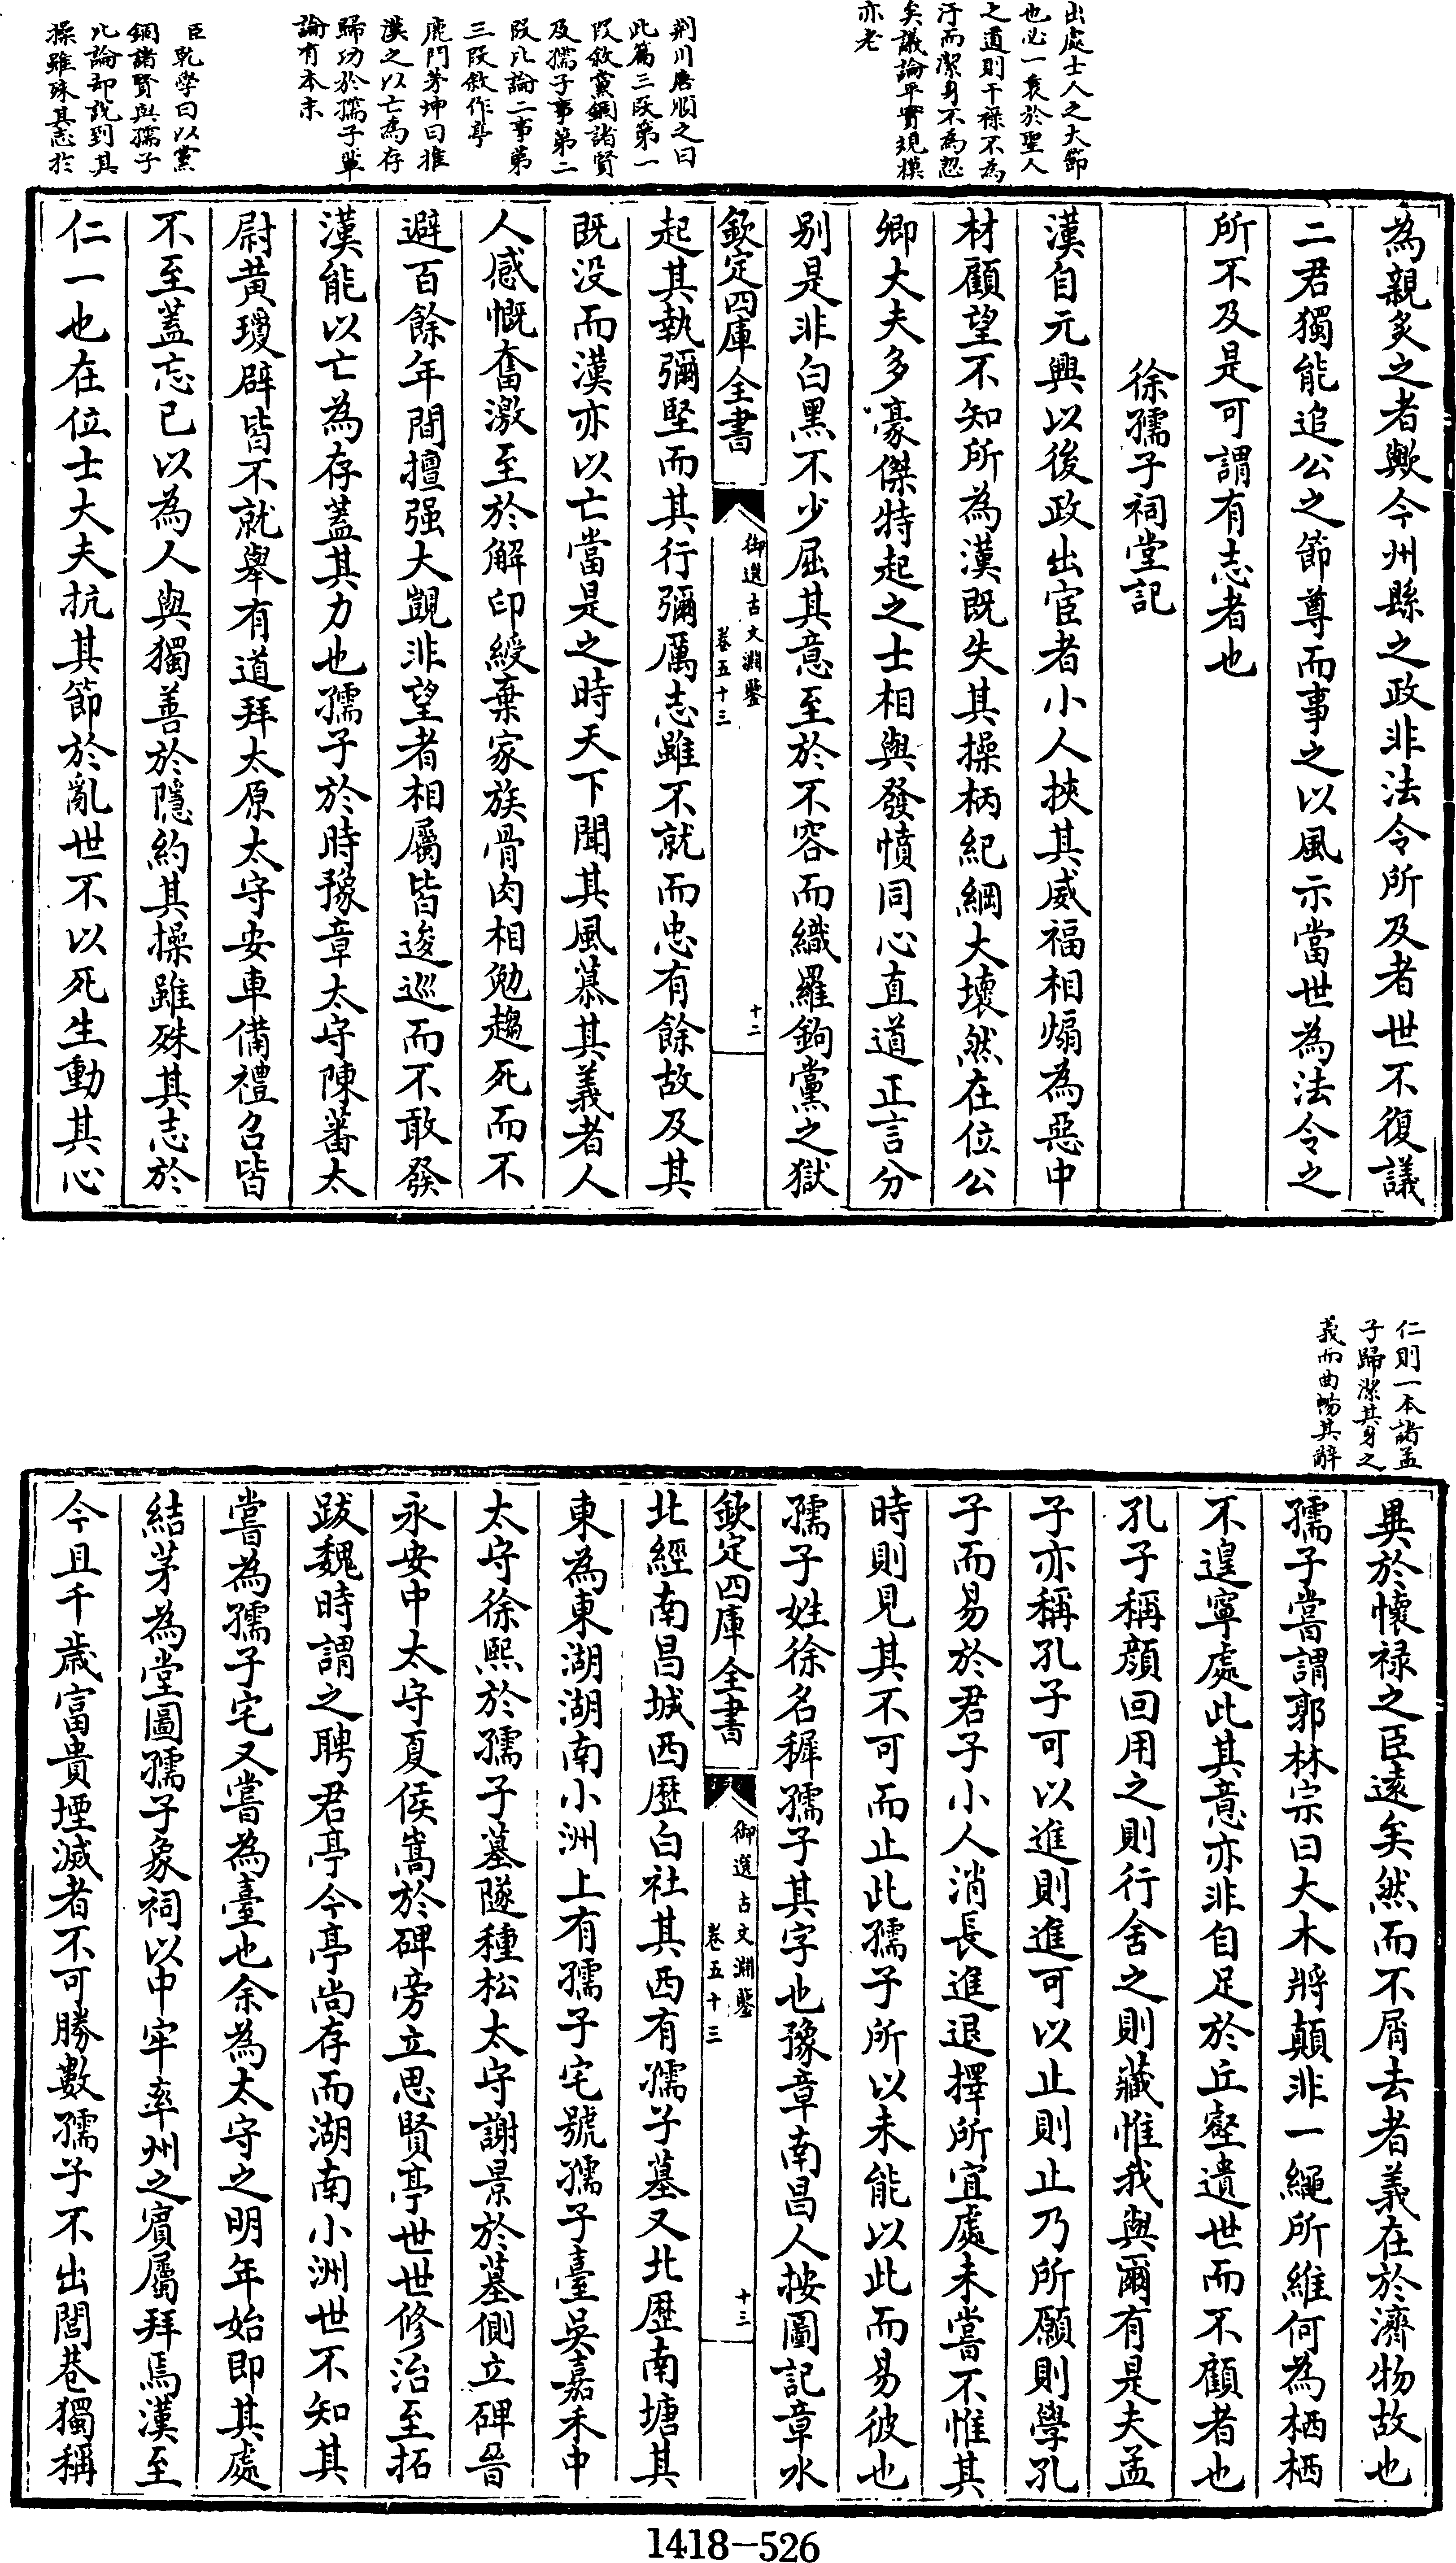 出處士人之大節
也必一衷於聖人
之道則干祿不為
汙而潔身不為忍
矣議論平實規模
亦老
荆川唐順之曰
此篇三段第一
段敘黨錮諸賢
及孺子事第二
段比論二事第
三段敘作亭
鹿門茅坤曰推
漢之以亡為存
歸功於孺子輩
論有本末
臣乾學曰以黨
錮諸賢與孺子
比論却說到其
操雖殊其志於
為親炙之者歟今州縣之政非法令所及者世不復議
二君獨能追公之節尊而事之以風示當世為法令之
所不及是可謂有志者也
徐孺子祠堂記
漢自元興以後政出宦者小人挾其威福相煽為惡中
材顧望不知所為漢既失其操柄紀綱大壞然在位公
卿大夫多豪傑特起之士相與發憤同心直道正言分
别是非白黑不少屈其意至於不容而織羅鉤黨之獄
欽定四庫全書
御選古文淵鑒
卷五十三
十二
起其執彌堅而其行彌厲志雖不就而忠有餘故及其
既没而漢亦以亡當是之時天下聞其風慕其義者人
人感慨奮激至於解印綬棄家族骨肉相勉趨死而不
避百餘年間擅强大覬非望者相屬皆逡巡而不敢發
漢能以亡為存蓋其力也孺子於時豫章太守陳蕃太
尉黄瓊辟皆不就舉有道拜太原太守安車備禮召皆
不至蓋忘己以為人與獨善於隱約其操雖殊其志於
仁一也在位士大夫抗其節於亂世不以死生動其心
仁則一本諸孟
子歸潔其身之
義而曲暢其辭
異於懷禄之臣遠矣然而不屑去者義在於濟物故也
孺子嘗謂郭林宗曰大木將顛非一繩所維何為栖栖
不遑寧處此其意亦非自足於丘壑遺世而不顧者也
孔子稱顔回用之則行舍之則藏惟我與爾有是夫孟
子亦稱孔子可以進則進可以止則止乃所願則學孔
子而易於君子小人消長進退擇所宜處未嘗不惟其
時則見其不可而止此孺子所以未能以此而易彼也
孺子姓徐名穉孺子其字也豫章南昌人按圖記章水
欽定四庫全書
御選古文淵鑒
卷五十三
十三
北經南昌城西歷白社其西有孺子墓又北歷南塘其
東為東湖湖南小洲上有孺子宅號孺子臺吳嘉禾中
太守徐熙於孺子墓隧種松太守謝景於墓側立碑晉
永安中太守夏侯嵩於碑旁立思賢亭世世修治至拓
跋魏時謂之聘君亭今亭尚存而湖南小洲世不知其
嘗為孺子宅又嘗為臺也余為太守之明年始即其處
結茅為堂圖孺子象祠以中牢率州之賓屬拜焉漢至
今且千歲富貴堙滅者不可勝數孺子不出閭巷獨稱
1418-526